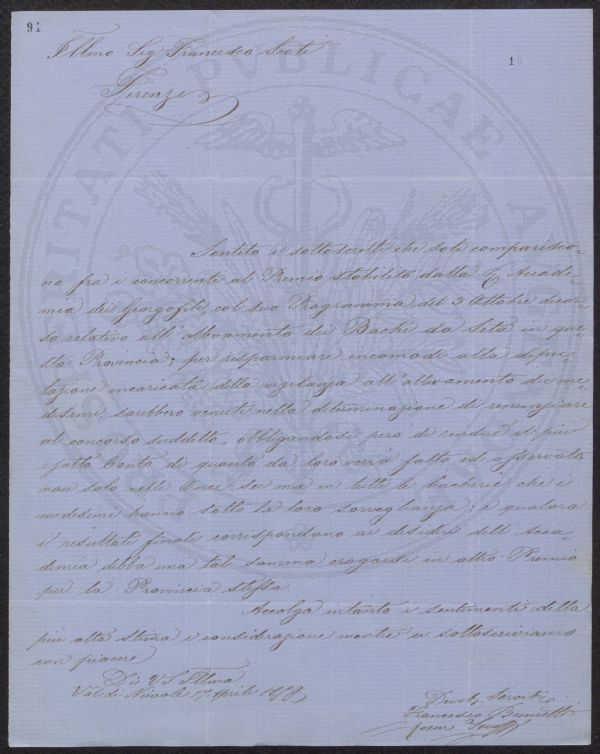 91
1
Illmo Sig Francesco
Firenze
Sentito i sottoscritti che soli comparisco-
no fra i concorrenti al Premio stabilito dalla R Accade-
mia dei Georgofili, col suo Programma del 3 Ottobre decor-
so relativo all' Allevamento dei Bachi da Seta in que-
sta Provincia; per risparmiare incomodi alla depu-
tazione incaricata della vigilanza all' allevamento dei me-
desimi, sarebbero venuti nella determinazione di renunziare
al concorso suddetto, obbligandosi però di rendere il più
esatto Conto di quanto da loro verrà fatto ed osservato,
non solo nelle Once sei ma in tutte le bacherie che i
medesimi hanno sotto la loro sorveglianza; e qualora
i resultati finali corrispondano ai desideri dell' Acca-
demia debba una tal somma erogarsi in altro Premio
per la Provincia stessa.
Accolga intanto i sentimenti della
più alta stima e considerazione mentre ci sottoscriviamo
con piacere
Di VS Illma
Val di Nievole 17 Aprile
Devoti Servitori
Francesco Brunelli